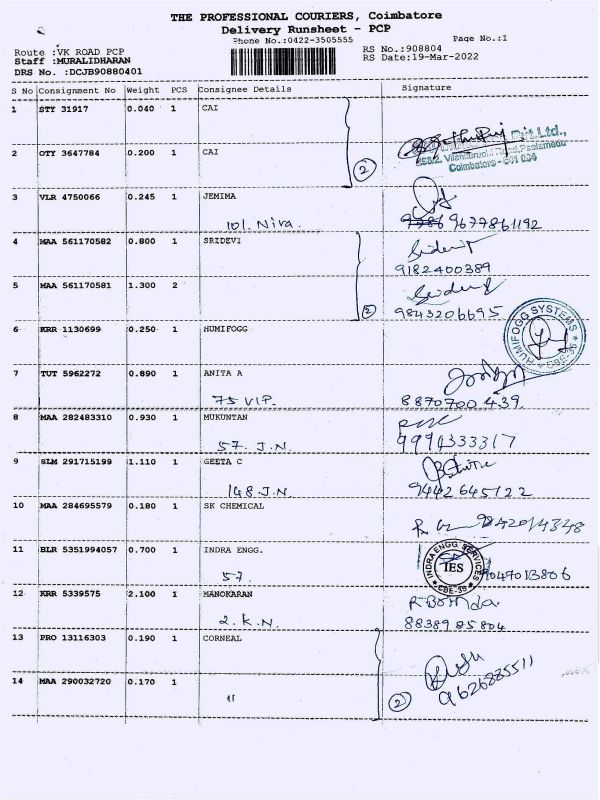 THE PROFESSIONAL COURIERS, Coimbatore
Delivery Runsheet - PCP
Phone No.:0422-3505555 Page No.:1
Route :VK ROAD PCP RS No.:908804
Staff :MURALIDHARAN RS Date:19-Mar-2022
DRS No. :DCJB90880401
S No Consignment No Weight PCS Consignee Details Signature
1 STY 31917 0.040 1 CAI
2 OTY 3647784 0.200 1 CAI 2
Pvt.Ltd.,
Coimbatore - 641 004
3 VLR 4750066 0.245 1 JEMIMA
101. Nira. 9677861192
4 MAA 561170582 0.800 1 SRIDEVI Sridevi
9182400389
5 MAA 561170581 1.300 2 Sridevi
2 9843206695
6 KRR 1130699 0.250 1 HUMIFOGG HUMIFOGG SYSTEMS CBE-35
7 TUT 5962272 0.890 1 ANITA A
75 VIP. 8870700 439
8 MAA 282483310 0.930 1 MUKUNTAN
57. J.N. 9994333317
9 SLM 291715199 1.110 1 GEETA C
148 J.N. 9442645122
10 MAA 284695579 0.180 1 SK CHEMICAL
11 BLR 5351994057 0.700 1 INDRA ENGG. INDRA ENGG SERVICES IES CBE-35
57. 9047013806
12 KRR 5339575 2.100 1 MANOKARAN
2. K.N. 8838985804
13 PRO 13116303 0.190 1 CORNEAL
14 MAA 290032720 0.170 1 " 2 9626885511